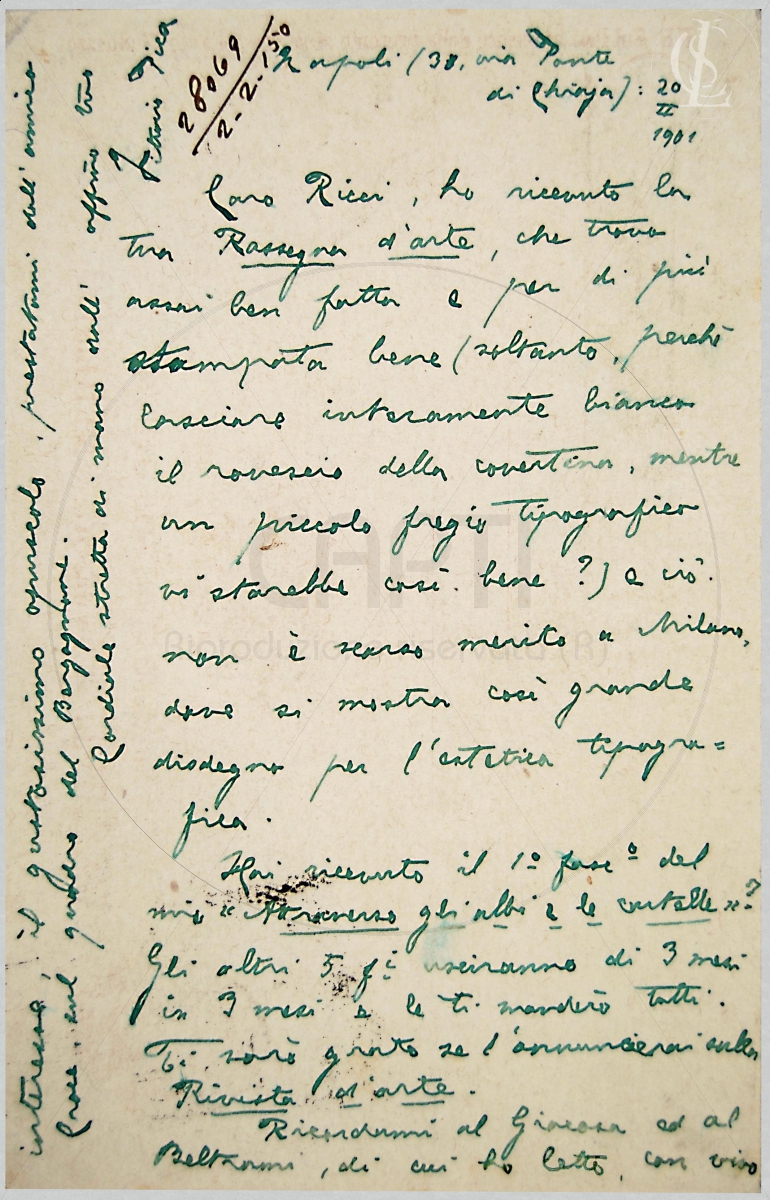 28069
2-2-150
Napoli (38, via Ponte
di Chiaja): 20
II
1901
Caro Ricci, ho ricevuto la
tua Rassegna d'arte, che trovo
assai ben fatta e per di più
stampata bene (soltanto, perchè
lasciare interamente bianco
il rovescio della covertina, mentre
un piccolo fregio tipografico
vi starebbe così bene?) e ciò
non è scarso merito a Milano,
dove si mostra così grande
disdegno per l'estetica tipogra=
fica.
Hai ricevuto il 1º fascº del
mio "Attraverso gli albi e le cartelle"?
Gli altri 5 f.i usciranno di 3 mesi
in 3 mesi e te li manderò tutti.
Ti sarò grato se l'annuncerai sulla
Rivista d'arte.
Ricordami al Giacosa ed al
Beltrami, di cui ho letto, con vivo
interesse, il gustosissimo opuscolo, prestatomi dall'amico
Croce, sul quadro del Bergognone.
Cordiale stretta di mano dall' affmo tuo
Vittorio Pica
CAPTI
Riproduzione riservata (R)